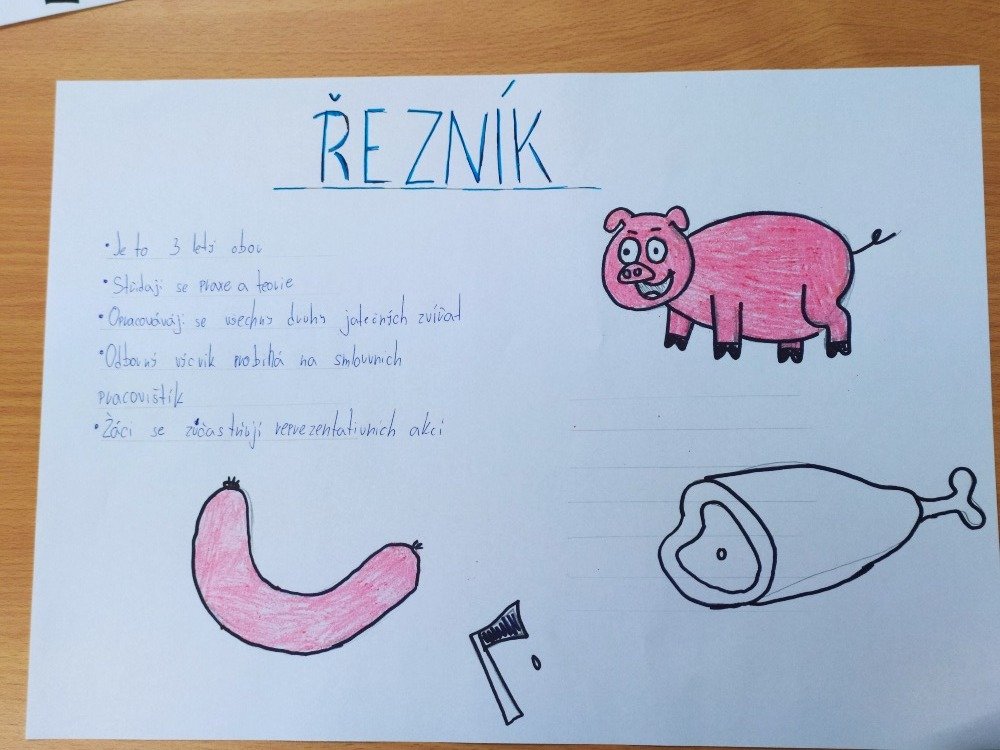 ŘEZNÍK
• Je to 3 letý obor
• Střídají se praxe a teorie
• Opracovávají se všechny druhy jatečných zvířat
• Odborný výcvik probíhá na smluvních
pracovištích
• Žáci se zúčastňují reprezentativních akcí